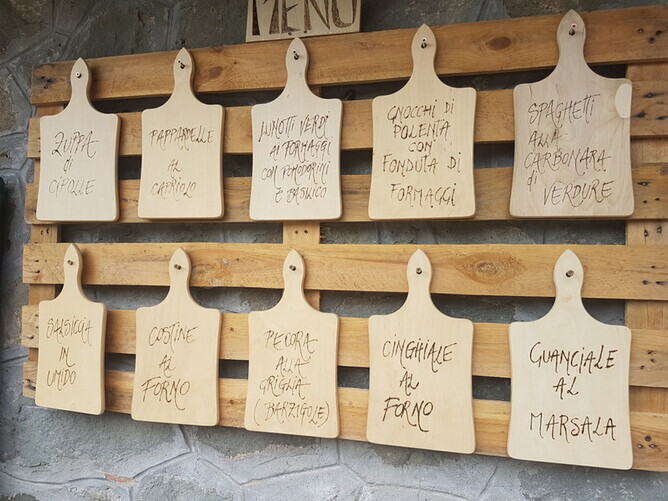 MENU
ZUPPA
di
CIPOLLE
PAPPARDELLE
AL
CAPRIOLO
LUNOTTI VERDI
AI FORMAGGI
CON POMODORINI
E BASILICO
GNOCCHI DI
POLENTA
CON
FONDUTA DI
FORMAGGI
SPAGHETTI
ALLA
CARBONARA
di
VERDURE
SALSICCIA
IN
UMIDO
COSTINE
AL
FORNO
PECORA
ALLA
GRIGLIA
(BARZIGOLE)
CINGHIALE
AL
FORNO
GUANCIALE
AL
MARSALA